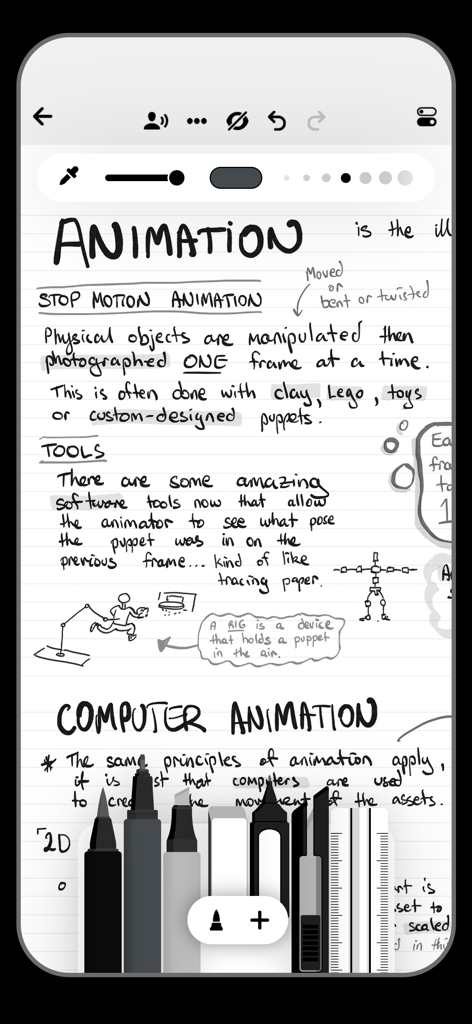 ANIMATION is the ill
Moved
or
bent or twisted
STOP MOTION ANIMATION
Physical objects are manipulated then
photographed ONE frame at a time.
This is often done with clay, Lego, toys
or custom-designed puppets.
TOOLS
There are some amazing
software tools now that allow
the animator to see what pose
the puppet was in on the
previous frame... kind of like
tracing paper.
Ea
fra
to
1
A
A RIG is a device
that holds a puppet
in the air.
COMPUTER ANIMATION
* The same principles of animation apply,
it is st that computers are used
to crea he movement of the assets.
2D
rt is
set to
scaled
d in thi